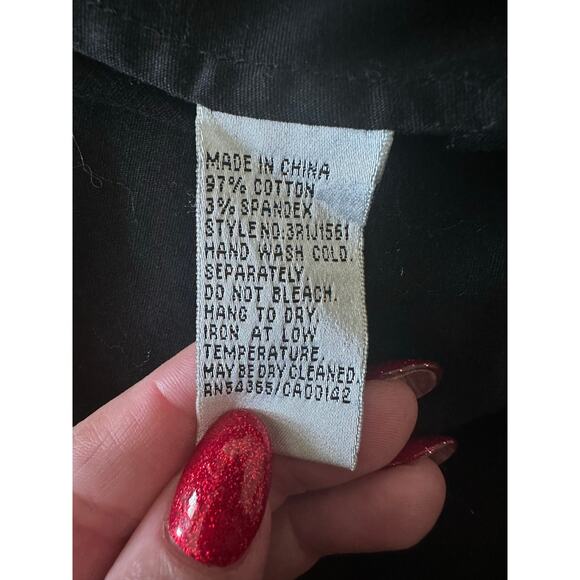 MADE IN CHINA
97% COTTON
3% SPANDEX
STYLE NO.3R1J1561
HAND WASH COLD.
SEPARATELY.
DO NOT BLEACH.
HANG TO DRY.
IRON AT LOW
TEMPERATURE.
MAY BE DRY CLEANED.
RN54365/CA00142